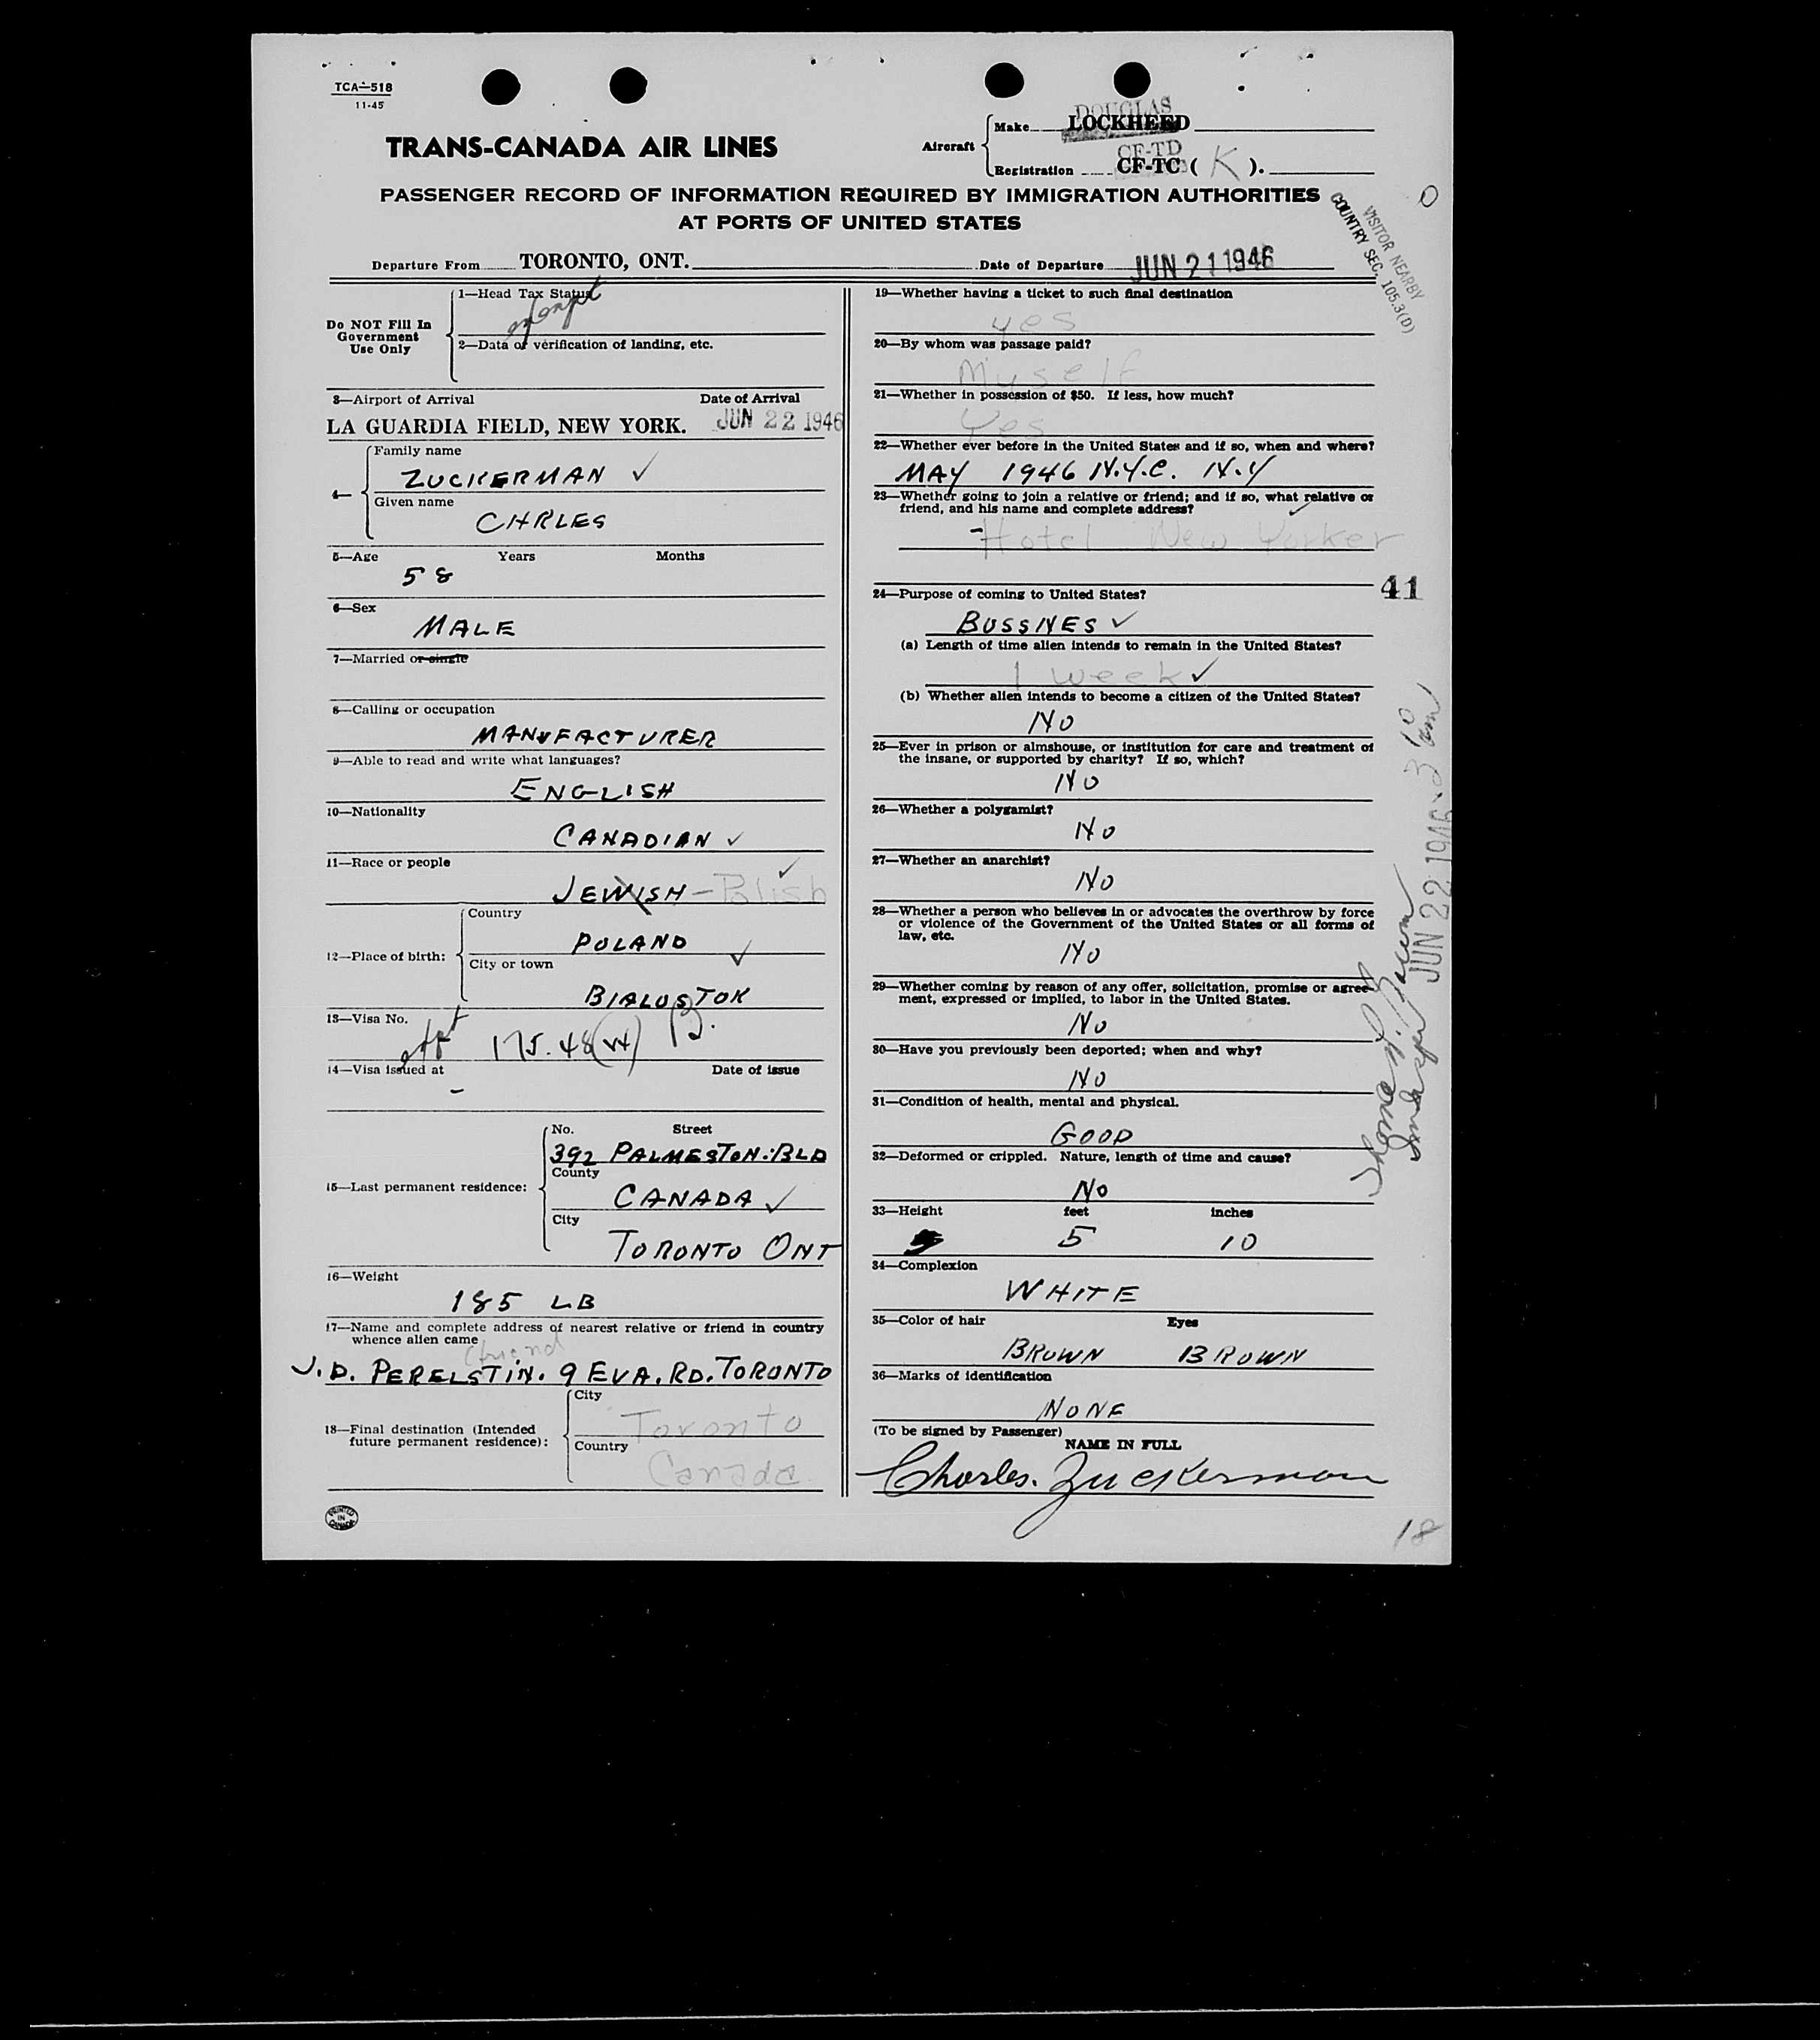 TCA-518
11-45
TRANS-CANADA AIR LINES
Aircraft
Make DOUGLAS LOCKHEED
Registration CF-TD CF-TC ( K ).
PASSENGER RECORD OF INFORMATION REQUIRED BY IMMIGRATION AUTHORITIES
AT PORTS OF UNITED STATES
VISITOR NEARBY
COUNTRY SEC. 105.3(D)
Departure From TORONTO, ONT. Date of Departure JUN 21 1946
Do NOT Fill In
Government
Use Only
1—Head Tax Status
exempt
2—Data of verification of landing, etc.
3—Airport of Arrival Date of Arrival
LA GUARDIA FIELD, NEW YORK. JUN 22 1946
4—
Family name
ZUCKERMAN ✓
Given name
CHRLES
5—Age Years Months
58
6—Sex
MALE
7—Married or single
8—Calling or occupation
MANUFACTURER
9—Able to read and write what languages?
ENGLISH
10—Nationality
CANADIAN ✓
11—Race or people
JEWISH - Polish ✓
12—Place of birth:
Country
POLAND
City or town ✓
BIALUSTOK
13—Visa No.
175.48(W) B.
14—Visa issued at Date of issue
-
15—Last permanent residence:
No. Street
392 PALMESTON. BLD
County
CANADA ✓
City
TORONTO ONT
16—Weight
185 LB
17—Name and complete address of nearest relative or friend in country
whence alien came
(friend
J.D. PERELSTIN. 9 EVA. RD. TORONTO
18—Final destination (Intended
future permanent residence):
City
Toronto
Country
Canada
PRINTED
IN
CANADA
19—Whether having a ticket to such final destination
yes
20—By whom was passage paid?
Myself
21—Whether in possession of $50. If less, how much?
Yes
22—Whether ever before in the United States and if so, when and where?
MAY 1946 N.Y.C. N.Y
23—Whether going to join a relative or friend; and if so, what relative or
friend, and his name and complete address? ✓
- Hotel New Yorker
41
24—Purpose of coming to United States?
BUSSINES ✓
(a) Length of time alien intends to remain in the United States?
1 week ✓
(b) Whether alien intends to become a citizen of the United States?
NO
25—Ever in prison or almshouse, or institution for care and treatment of
the insane, or supported by charity? If so, which?
NO
26—Whether a polygamist?
NO
27—Whether an anarchist?
NO
28—Whether a person who believes in or advocates the overthrow by force
or violence of the Government of the United States or all forms of
law, etc.
NO
29—Whether coming by reason of any offer, solicitation, promise or agree-
ment, expressed or implied, to labor in the United States.
NO
30—Have you previously been deported; when and why?
NO
31—Condition of health, mental and physical.
GOOD
32—Deformed or crippled. Nature, length of time and cause?
NO
33—Height feet inches
5 10
34—Complexion
WHITE
35—Color of hair Eyes
BROWN BROWN
36—Marks of identification
NONE
(To be signed by Passenger)
NAME IN FULL
Charles. Zuckerman
JUN 22 1946
18